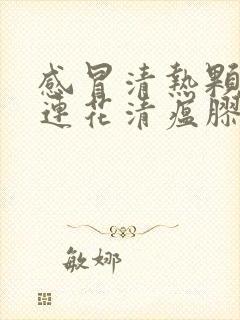 感冒清热颗
連花清瘟膠
敏娜